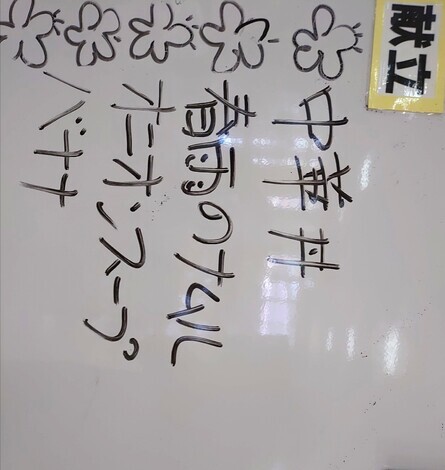 献立
中華丼
春雨のナムル
オニオンスープ
バナナ